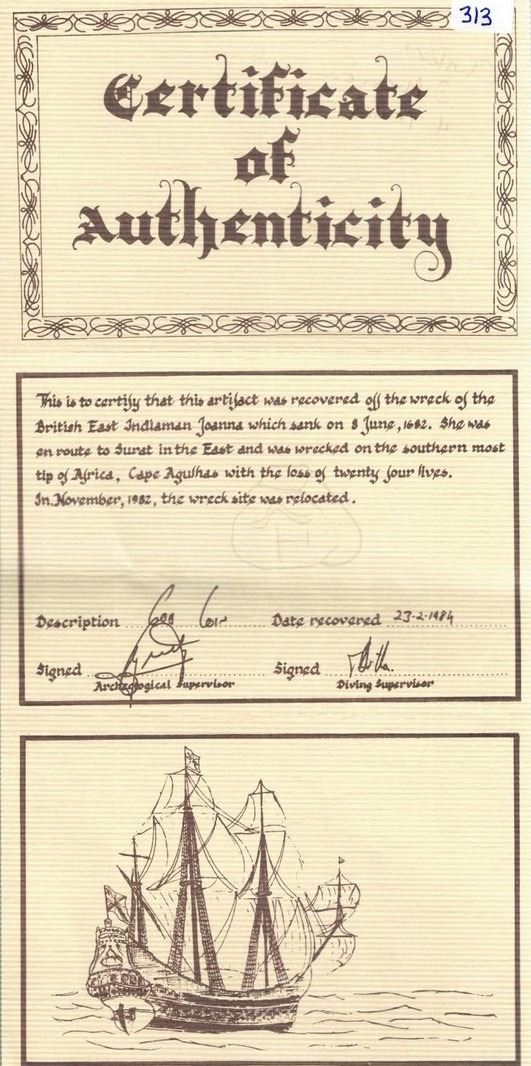 313
Certificate
of
Authenticity
This is to certify that this artifact was recovered off the wreck of the
British East Indiaman Joanna which sank on 8 June, 1682. She was
en route to Surat in the East and was wrecked on the southern most
tip of Africa, Cape Agulhas with the loss of twenty four lives.
In November, 1982, the wreck site was relocated.
Description Date recovered 23-2-1984
Signed Signed
Archeological Supervisor Diving Supervisor